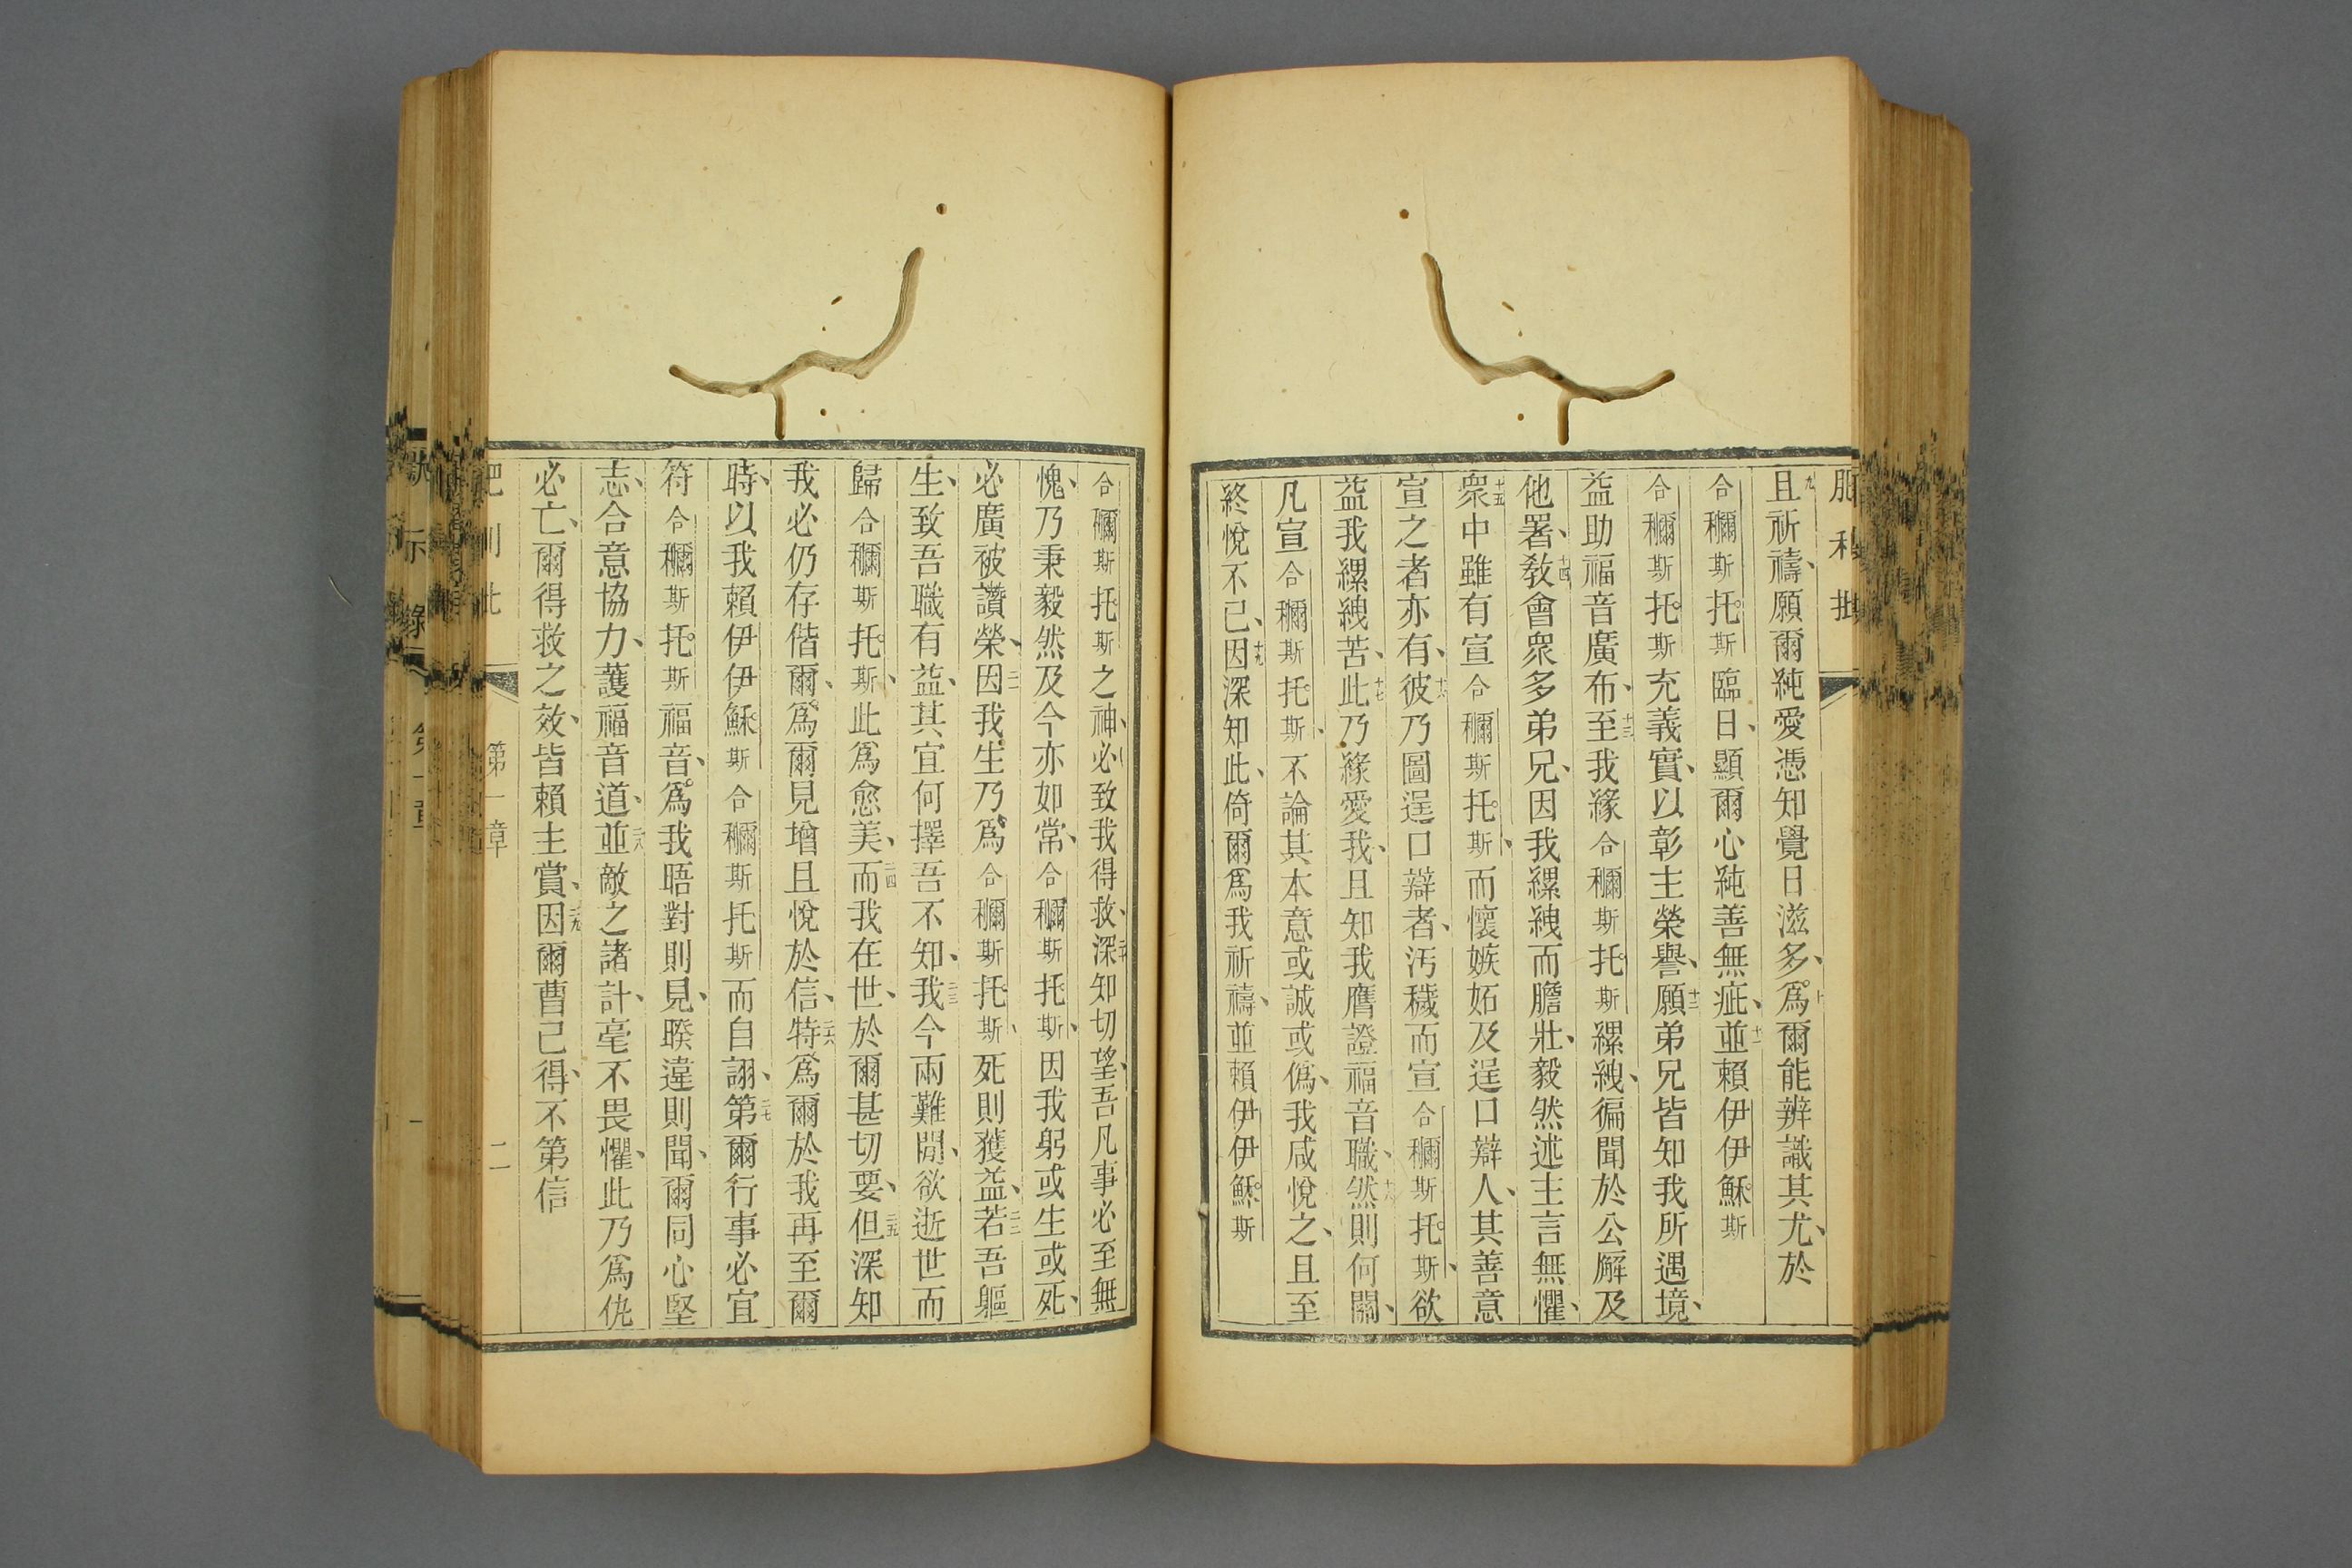 且祈禱、願爾純愛憑知覺日滋多、爲爾能辨識其尤、於
合穪斯托斯臨日、顯爾心純善無疵、並賴伊伊穌斯
合穪斯托斯充義實、以彰主榮譽、願弟兄皆知我所遇境、
益助福音廣布、至我緣合穪斯托斯縲絏、徧聞於公廨及
他署、教會衆多弟兄、因我縲絏而膽壯、毅然述主言無懼、
衆中雖有宣合穪斯托斯、而懷嫉妬及逞口辯人、其善意
宣之者亦有、彼乃圖逞口辯者、污穢而宣合穪斯托斯、欲
益我縲絏苦、此乃緣愛我、且知我膺證福音職、然則何關、
凡宣合穪斯托斯、不論其本意或誠或僞、我咸悅之、且至
終悅不已、因深知此、倚爾爲我祈禱、並賴伊伊穌斯
合穪斯托斯之神、必致我得救、深知切望、吾凡事必至無
愧、乃秉毅然及今亦如常、合穪斯托斯、因我躬或生或死、
必廣被讚榮、因我生乃爲合穪斯托斯、死則獲益、若吾軀
生、致吾職有益、其宜何擇吾不知、我今兩難間、欲逝世而
歸合穪斯托斯、此爲愈美、而我在世、於爾甚切要、但深知
我必仍存偕爾、爲爾見增且悅於信、特爲爾於我再至爾
時、以我賴伊伊穌斯合穪斯托斯而自詡、第爾行事必宜
符合穪斯托斯福音、爲我晤對則見、暌違則聞、爾同心堅
志、合意協力、護福音道、並敵之諸計、毫不畏懼、此乃爲伊
必亡、爾得救之效、皆賴主賞、因爾曹已得、不第信
第一章
二